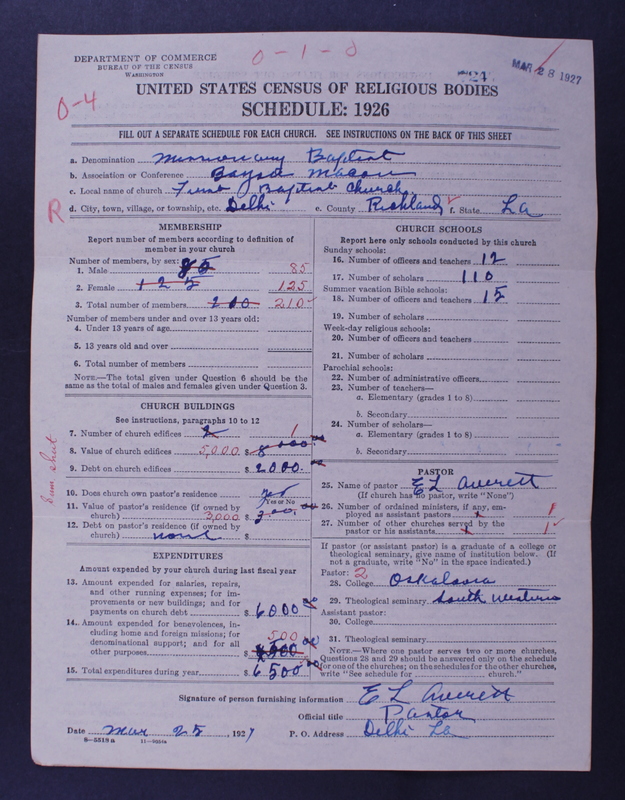 DEPARTMENT OF COMMERCE
BUREAU OF THE CENSUS
WASHINGTON
0-1-0
0-4
MAR 28 1927
UNITED STATES CENSUS OF RELIGIOUS BODIES
SCHEDULE: 1926
FILL OUT A SEPARATE SCHEDULE FOR EACH CHURCH. SEE INSTRUCTIONS ON THE BACK OF THIS SHEET
a. Denomination Missionary Baptist
b. Association or Conference Bayou Macon
c. Local name of church First Baptist Church
R d. City, town, village, or township, etc. Delhi e. County Richland f. State La
MEMBERSHIP
Report number of members according to definition of member in your church
Number of members, by sex:
1. Male 85 85
2. Female 125 125
3. Total number of members 210 210
Number of members under and over 13 years old:
4. Under 13 years of age
5. 13 years old and over
6. Total number of members
NOTE.—The total given under Question 6 should be
same as the total of males and females given under Question 3.
CHURCH BUILDINGS
See instructions, paragraphs 10 to 12
7. Number of church edifices 1
8. Value of church edifices 5,000 $ 8000.00
9. Debt on church edifices $ 2000.00
10. Does church own pastor's residence yes
Yes or No
11. Value of pastor's residence (if owned by
church) 3,000 $ 3000.00
12. Debt on pastor's residence (if owned by
church) none $
EXPENDITURES
Amount expended by church during last fiscal year
13. Amount expended for salaries, repairs,
and other running expenses; for im-
provements or new buildings; and for
payments on church debt $ 6000.00
14. Amount expended for benevolences, in-
cluding home and foreign missions; for
denominational support; and for all 500
other purposes $
15. Total expenditures during year $ 6500.00
CHURCH SCHOOLS
Report here only schools conducted by this church
Sunday schools:
16. Number of officers and teachers 12
17. Number of scholars 110
Summer vacation Bible schools:
18. Number of officers and teachers 15
19. Number of scholars
Week-day religious schools:
20. Number of officers and teachers
21. Number of scholars
Parochial schools:
22. Number of administrative officers
23. Number of teachers—
a. Elementary (grades 1 to 8)
b. Secondary
24. Number of scholars—
a. Elementary (grades 1 to 8)
b. Secondary
PASTOR
25. Name of pastor E L Averett
(If church has no pastor, write "None")
26. Number of ordained ministers, if any, em-
ployed as assistant pastors
27. Number of other churches served by the
pastor or his assistants 1
If pastor (or assistant pastor) is a graduate of a college or
theological seminary, give name of institution below. (If
not a graduate, write "No" in the space indicated.)
Pastor: 2
28. College Oskaloosa
29. Theological seminary South Western
Assistant pastor:
30. College
31. Theological seminary
NOTE.—Where one pastor serves two or more churches,
Questions 28 and 29 should be answered only on the schedule
for one of the churches; on the schedules for the other churches,
write "See schedule for church."
Signature of person furnishing information E L Averett
Official title Pastor
Date Mar 25, 1927 P. O. Address Delhi La